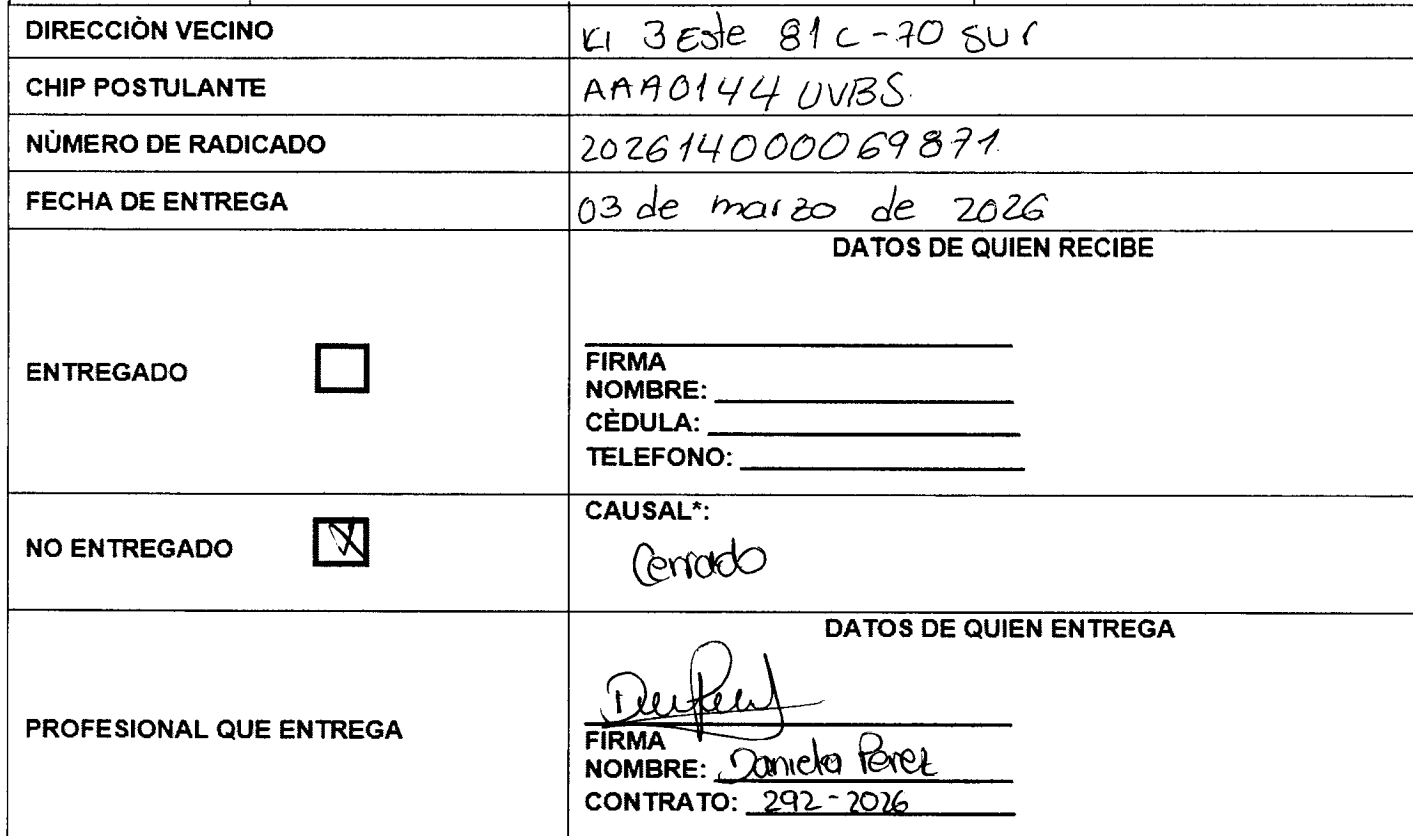 DIRECCIÒN VECINO Kr 3 Este 81 C - 70 SUR
CHIP POSTULANTE AAA0144 UVBS.
NÙMERO DE RADICADO 202614000069871
FECHA DE ENTREGA 03 de marzo de 2026
DATOS DE QUIEN RECIBE
ENTREGADO
FIRMA
NOMBRE:
CÈDULA:
TELEFONO:
NO ENTREGADO
CAUSAL*:
Cerrado
DATOS DE QUIEN ENTREGA
PROFESIONAL QUE ENTREGA
FIRMA
NOMBRE: Daniela Perez
CONTRATO: 292-2026